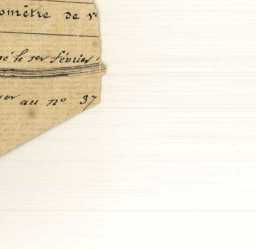 omètre de
é le 1er février
au n° 37